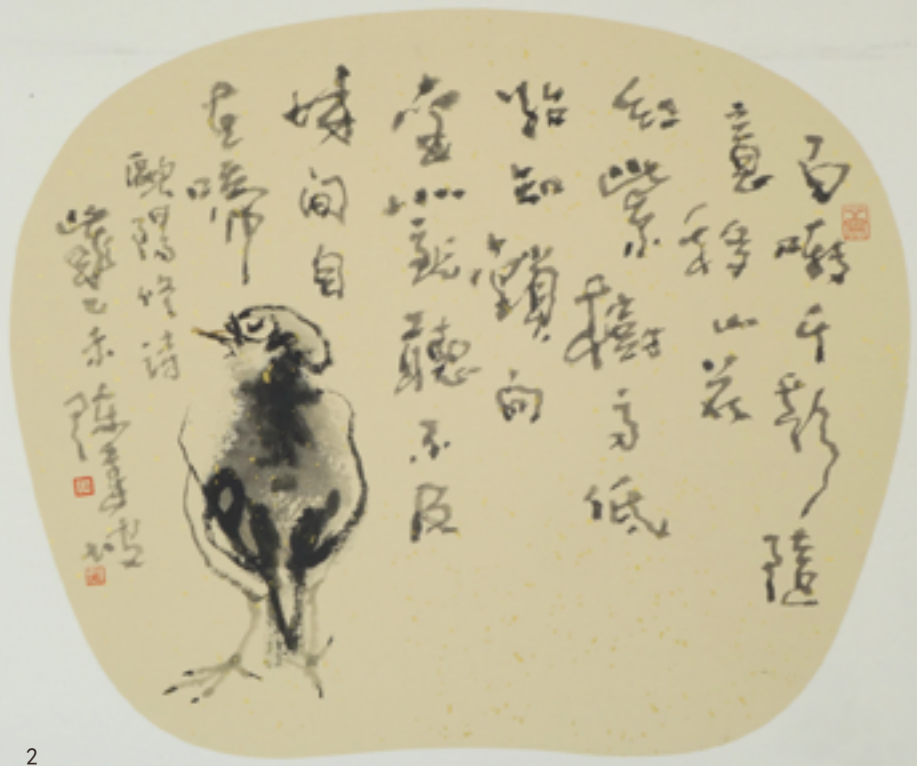 百囀千聲隨
意移山花
紅紫樹高低
始知鎖向
金籠聽不及
林間自
在啼
歐陽修詩
歲乙未 陳
2